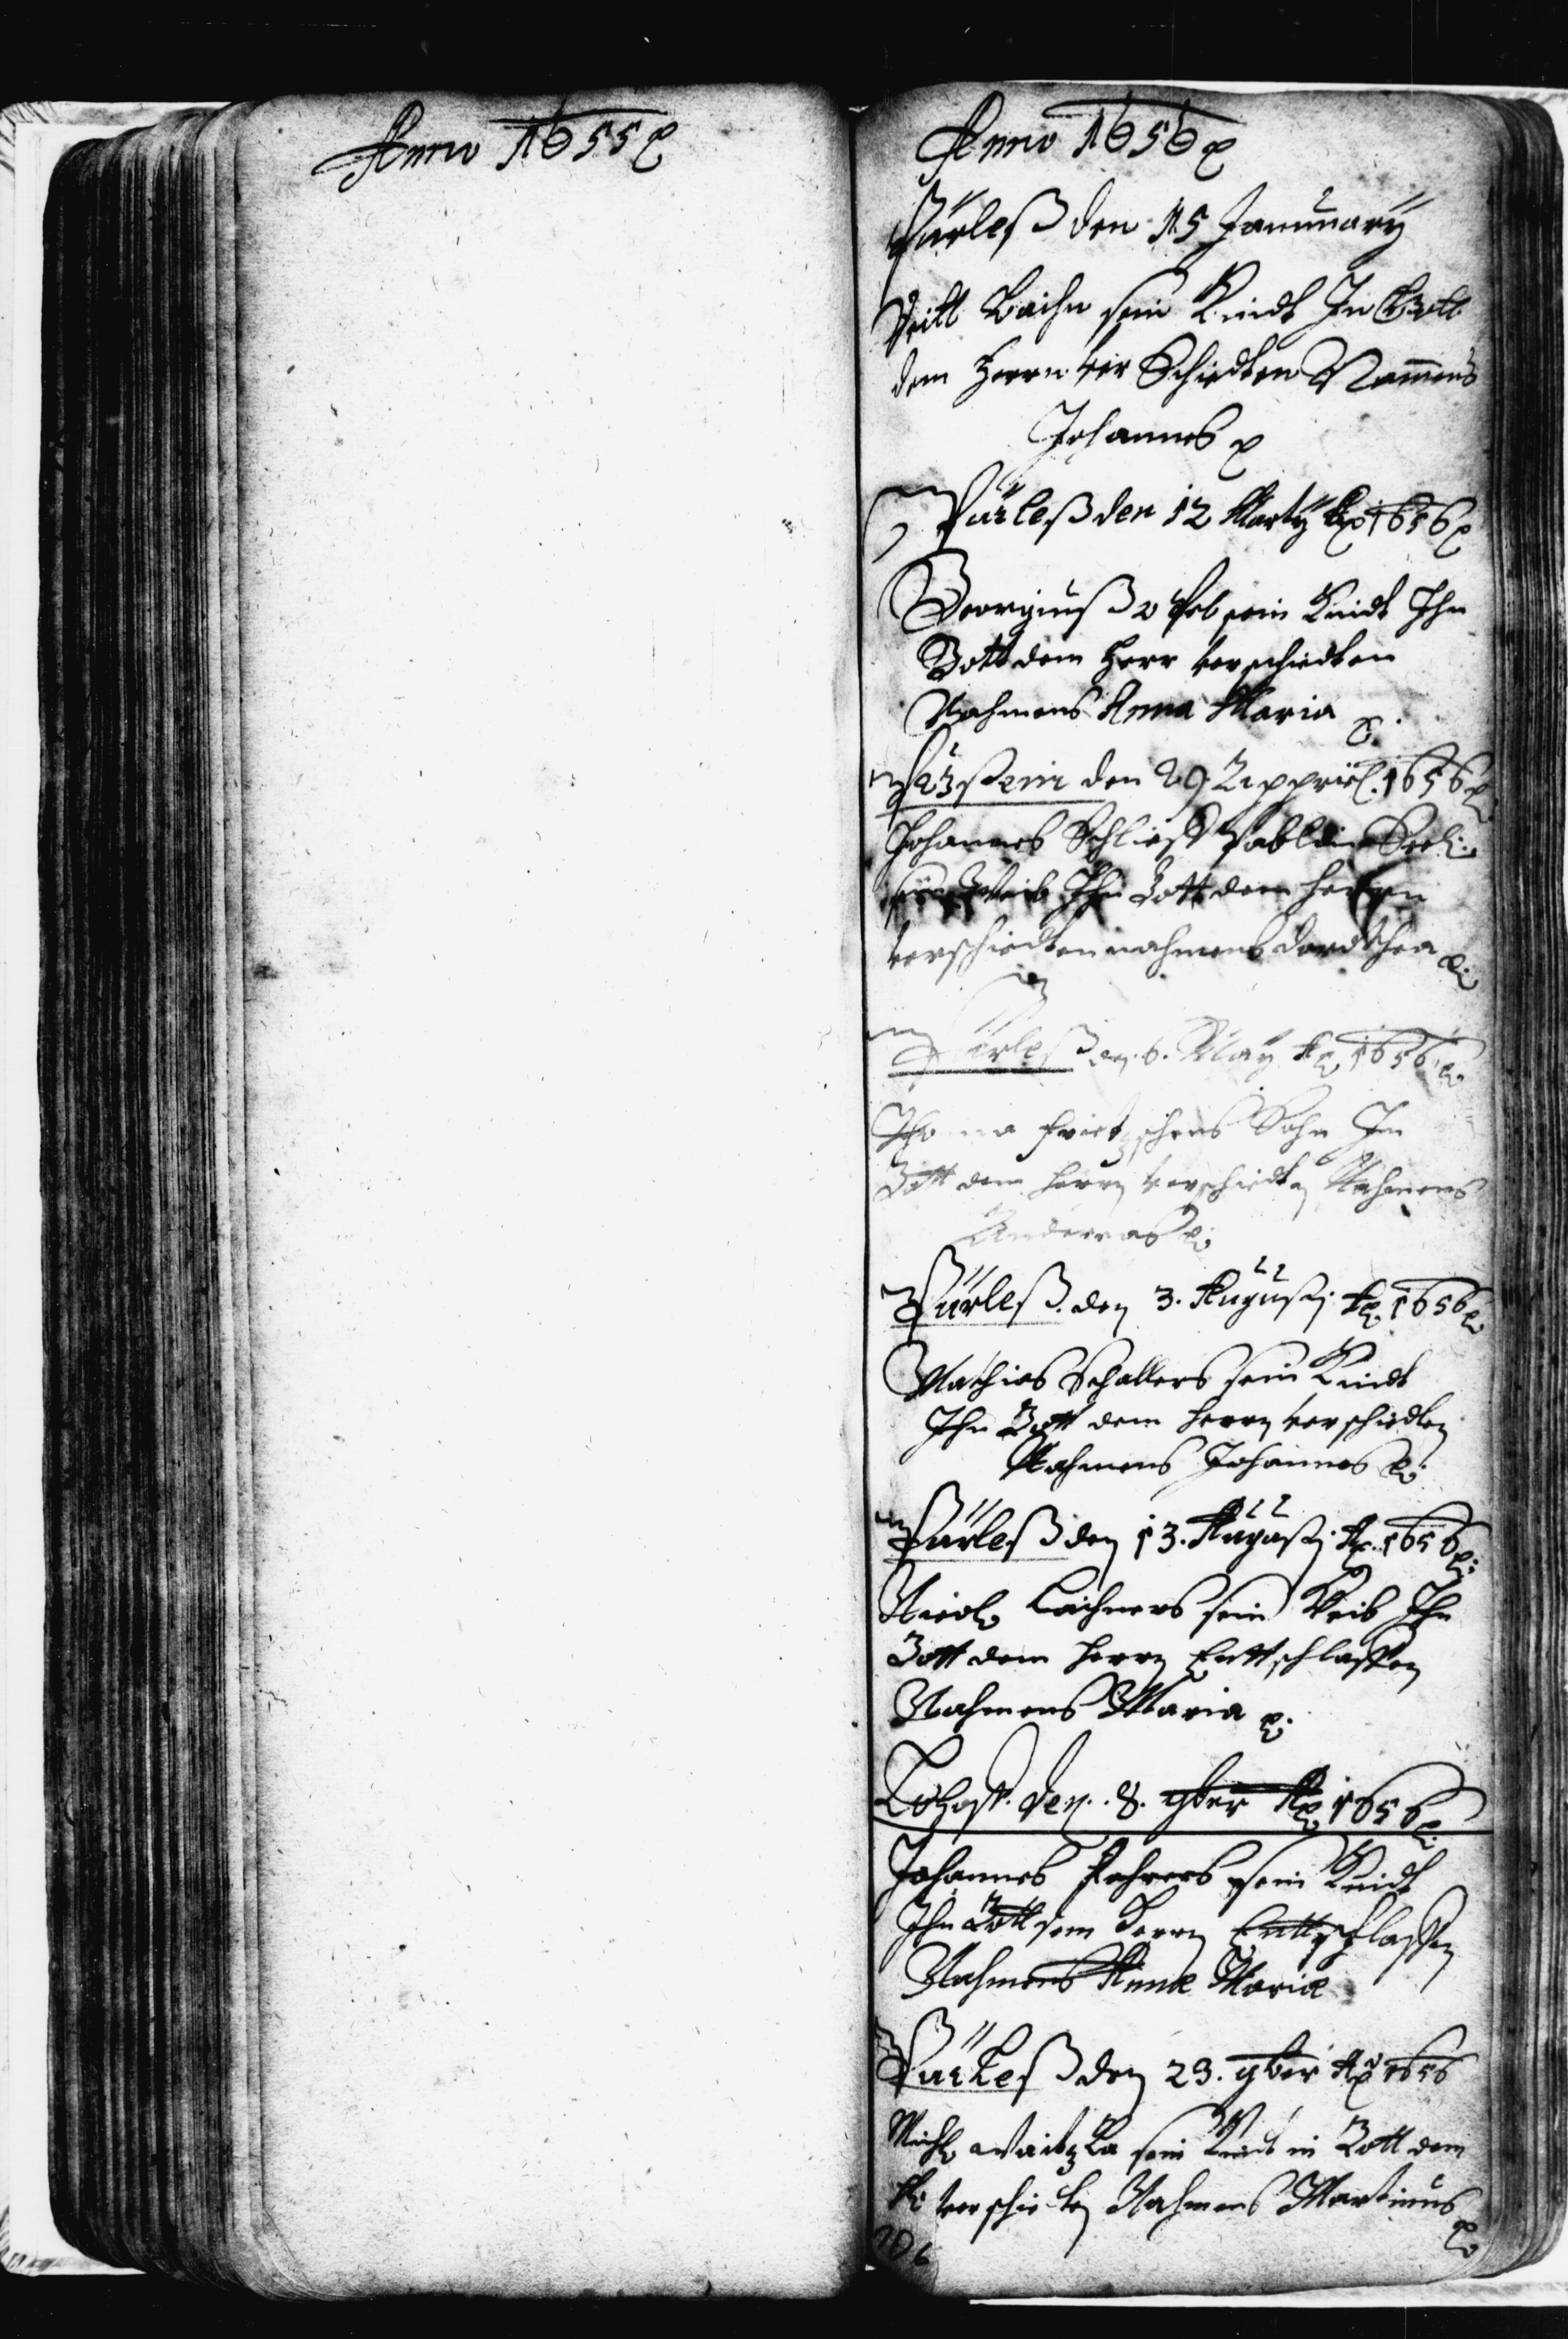 Anno 1655
Anno 1656
Pürleß den 15 January
Veitt Baihn sein Kindt In Gott
dem Herrn ver Schiedten Nammens
Johannes
Pürleß den 12 Marty Ao 1656
Georgiuß sein Kindt Ihn
Gott dem Herr verschiedten
Nahmens Anna Maria
den 29 Appriel 1656
Johannes Seel:
Weib Ihn Gott dem Herren
verschiedten nahmens Dorothea
Pürleß den 6. May Ao 1656
Sohn Im
Gott dem Herrn verschiedten Nahmens
Anderas
Pürleß den 3. Augusti Ao 1656
Mathias Schallers sein Kindt
Ihn Gott dem Herrn verschiedten
Nahmens Johannes
Pürleß den 13. Augusti Ao 1656
Nicol Laihners sein Weib Ihn
Gott dem Herrn Enttschlaffen
Nahmens Maria
den 8. 9ber Ao 1656
Johannes sein Kindt
Ihn Gott dem Herrn Enttschlaffen
Nahmens Anna Maria
Pürleß den 23. 9ber Ao 1656
Michl sein Kindt in Gott dem
H: verschieten Nahmens Martinus